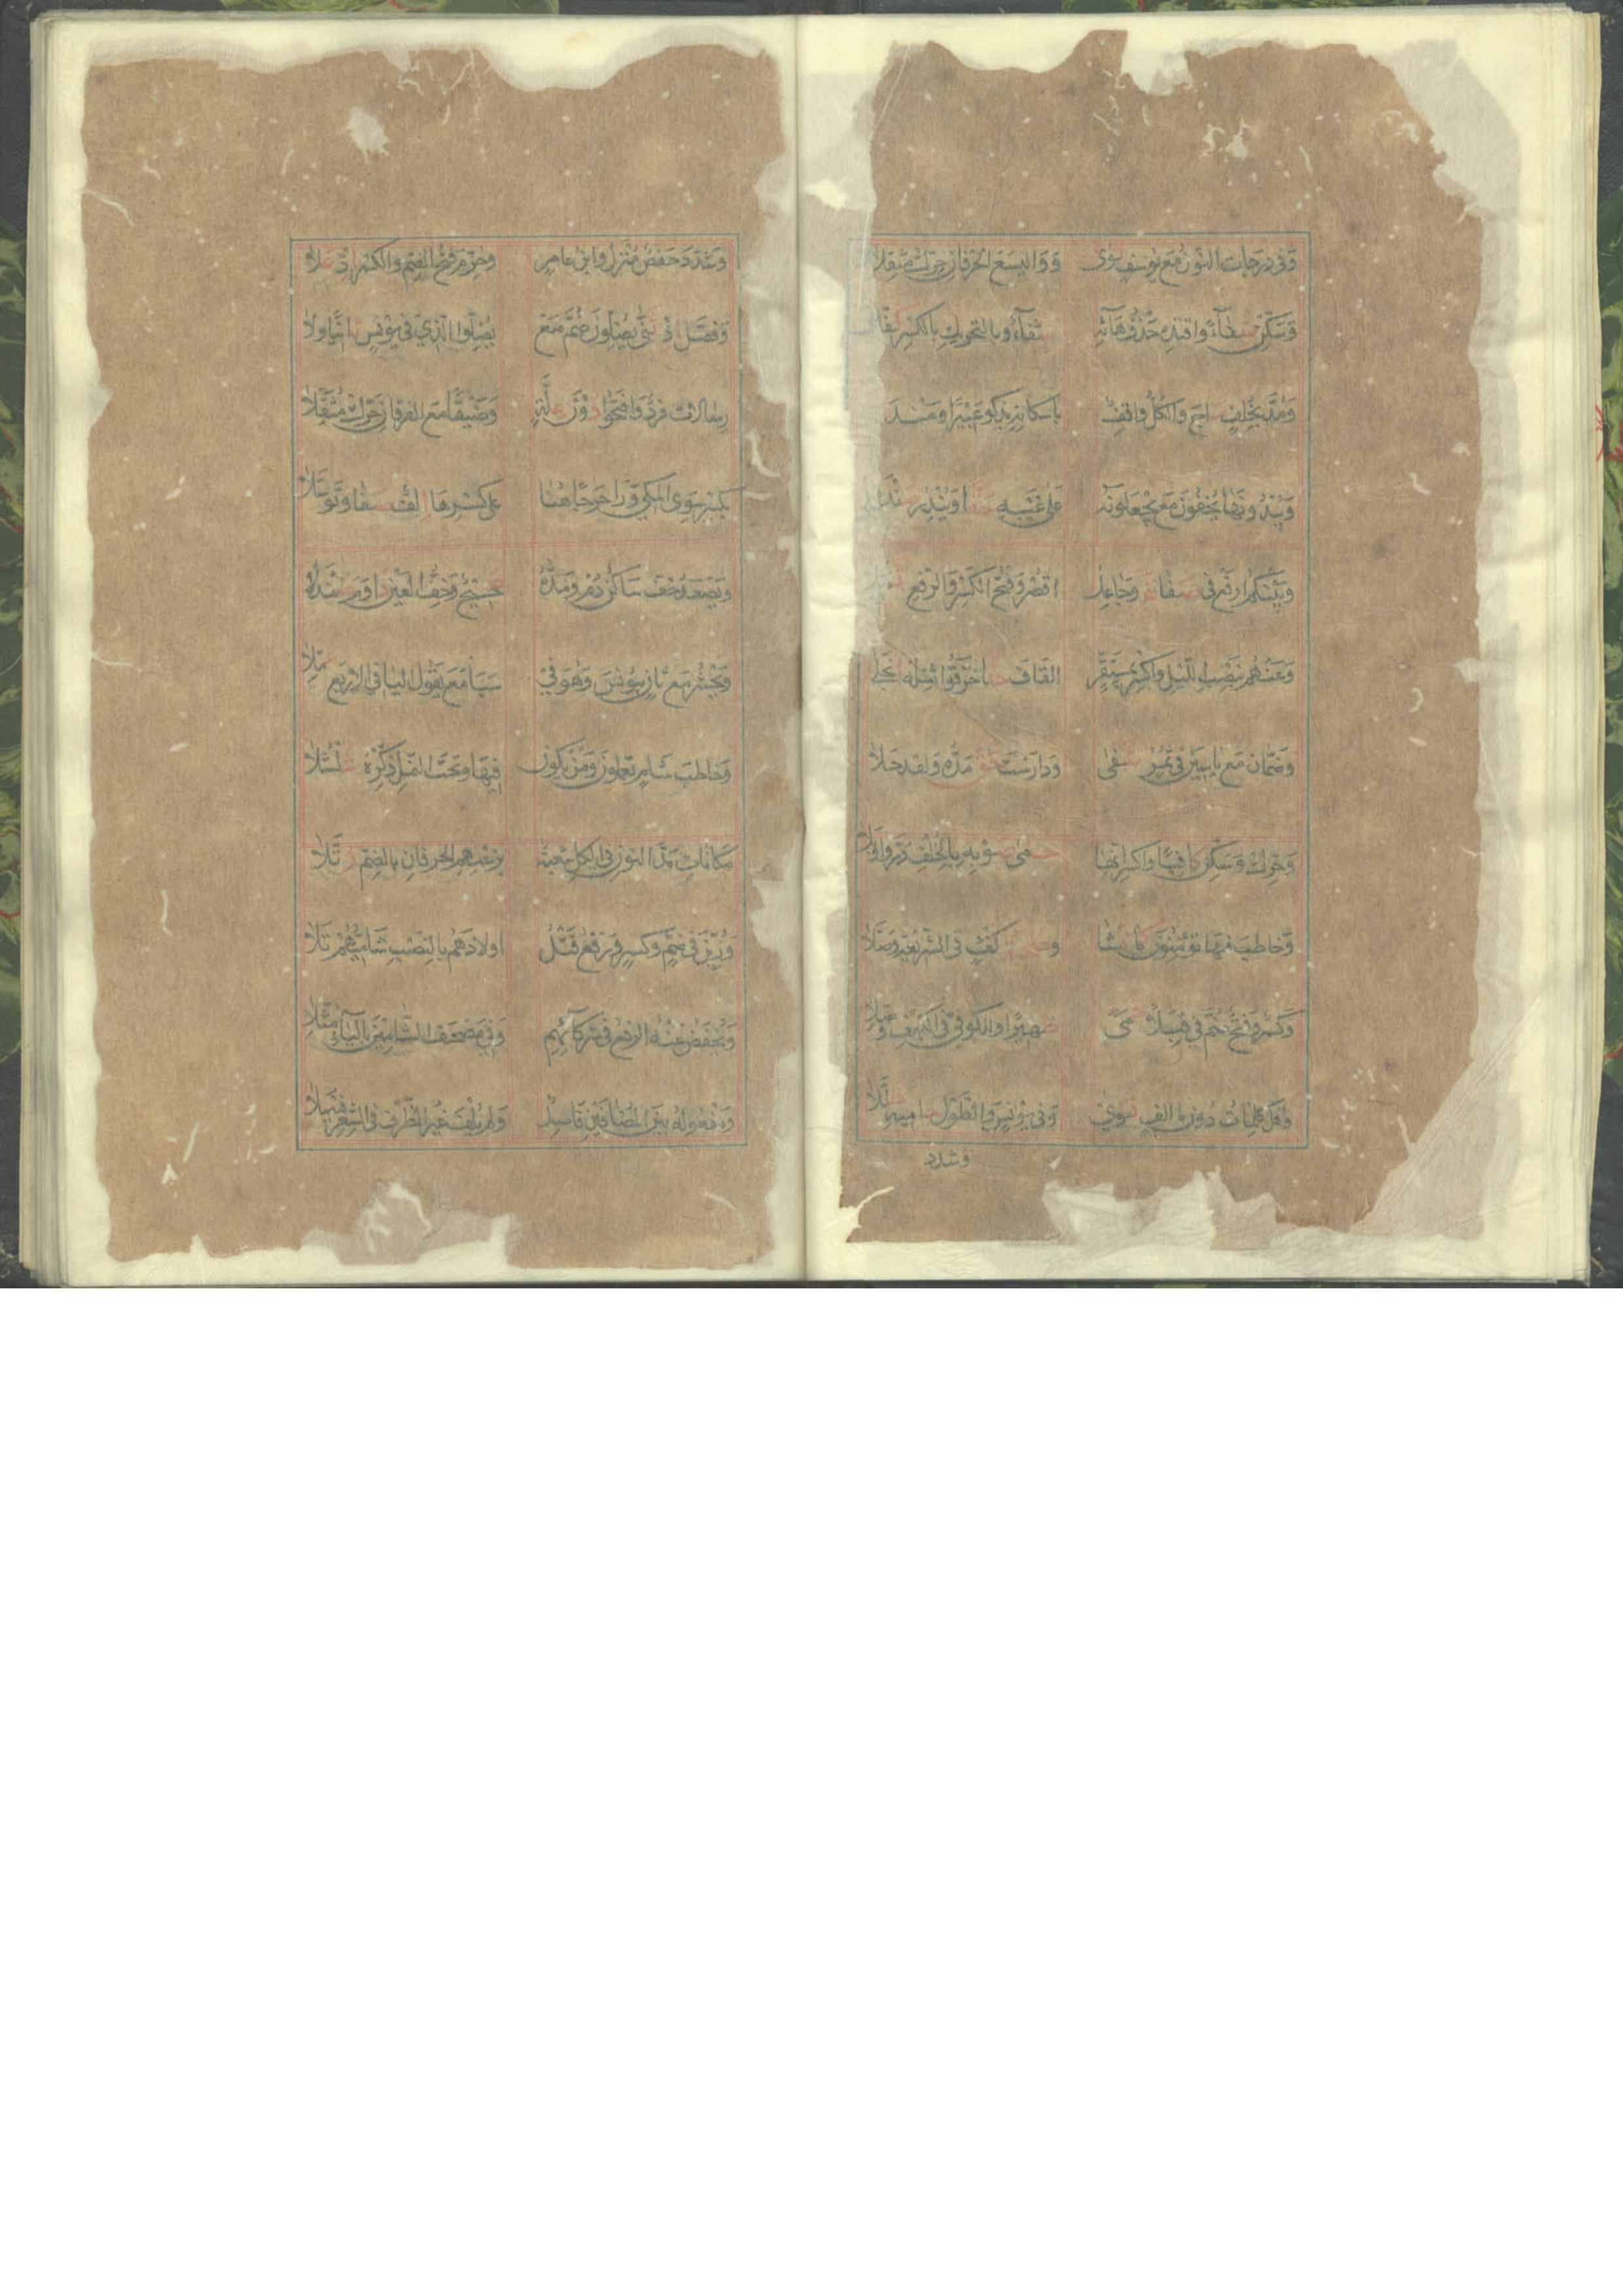 وَفى دَرَجَاتِ النّونُ مَعْ يُوسُفٍ ثوى وَوَالَّيسَعَ الحَرْفَانِ حَرِّكْ مُثَقِّلَا
وَسَكِّنْ شِفَآءً وَاقْتَدِهْ حَذْفُ هَآئِهِ شِفَآءٌ وبِالتَّحْرِيكِ بِالكَسْرِ كُفِّلَا
وَمُدَّ بِخُلْفٍ مَاجَ وَالكُلُّ وَاقِفٌ بِاِسْكَانِهِ يَذْكُو عَبِيْرًا وَمَنْدَلَا
وَيُبْدُونَهَا يُخْفُونَ مَعْ يَجْعَلُونَهُ عَلى غَيْبِهِ حَقًّا وَيُنْذِرَ صَنْدَلَا
وَبَيْنَكُمُ ارْفَعْ فى صَفَا نَفَرٍ وَجَاعِلُ اقْصُرْ وَفَتْحُ الكَسْرِ وَالرَّفْعِ
وَعَنْهُمْ بِنَصْبِ اللَّيْلِ وَاكْسِرْ بِمُسْتَقِرٍّ القَافَ حَقًّا خَرَّقُوا ثِقْلُهُ انْجَلى
وَضَمَّانِ مَعْ يَاسِينَ فى ثَمَرٍ شَفى وَدَارَسْتَ حَقٌّ مَدُّهُ وَلَقَدْ حَلَا
وَحَرِّكْ وَسَكِّنْ كَافِيًا وَاكْسِرِ انَّهَا حِمى صَوْبِهِ بِالخُلْفِ دَرَّ وَاَوْبَلَا
وَخَاطَبَ فِيهَا تُؤْمِنُونَ كَمَا فَشَا وَصُحْبَةُ كُفْؤٍ فى الشَّرِيعَةِ وَصَّلَا
وَكَسْرٌ وَفَتْحٌ ضُمَّ فى قِبَلًا حَمى ظَهِيرًا وَالكُوفِيِّ فى الكَهْفِ وُصِّلَا
وَقُلْ كَلِمَاتٌ دُونَ مَا اَلِفٍ ثَوى وَفى يُونُسٍ وَالطَّوْلِ حَامِيهِ ظَلَّلَا
وشدد
وَشَدَّدَ حَفْصٌ مُنْزَلٌ وَابْنُ عَامِرٍ وَحُرِّمَ فَتْحُ الضَّمِّ وَالكَسْرِ اِذْ عَلَا
وَفُصِّلَ اِذْ ثَنّى يُضِلُّونَ ضُمَّ مَعْ يُضِلُّوا الَّذِي فى يُونُسٍ ثَابِتًا وَلَا
رِسَالَاتِ فَرْدٌ وَافْتَحُوا دُونَ عِلَّةٍ وَضَيْقًا مَعَ الفُرْقَانِ حَرِّكْ مُثَقِّلَا
بِكَسْرٍ سِوَى المَكِّيْ وَرَا حَرَجًا هُنَا عَلى كَسْرِهَا اِلْفٌ صَفَا وَتَوَسَّلَا
وَيَصْعَدُ خِفٌّ سَاكِنٌ دُمْ وَمَدُّهُ صَحِيحٌ وَخِفُّ العَيْنِ دَاوَمَ صَنْدَلَا
وَنَحْشُرُ مَعْ ثَانٍ بِيُونُسَ وَهُوَ فِي سَبَا مَعْ نَقُولُ اليَا فى الاَرْبَعِ عُمِّلَا
وَخَاطَبَ شَامٍ تَعْلَمُونَ وَمَنْ يَكُونُ فِيهَا وَتَحْتَ النَّمْلِ ذَكِّرْهُ شُلْشُلَا
مَكَانَاتِ مَدَّ النُّونَ فى الكُلِّ شُعْبَةٌ بِزَعْمِهِمُ الحَرْفَانِ بِالضَّمِّ رُتِّلَا
وَزُيِّنَ فى ضَمٍّ وَكَسْرٍ وَرَفْعُ قَتْلُ اَوْلَادَهُمْ بِالنَّصْبِ شَامِيُّهُمْ تَلَا
وَيُخْفَضُ عَنْهُ الرَّفْعُ فى شُرَكَآئِهِمْ وَفى مُصْحَفِ الشَّامِينَ بِاليَآءِ مُثِّلَا
وَمَفْعُولُهُ بَيْنَ المُضَافَيْنِ فَاصِلٌ وَلَمْ يُلْفَ غَيْرُ الظَّرْفِ فى الشِّعْرِ فَيْصَلَا